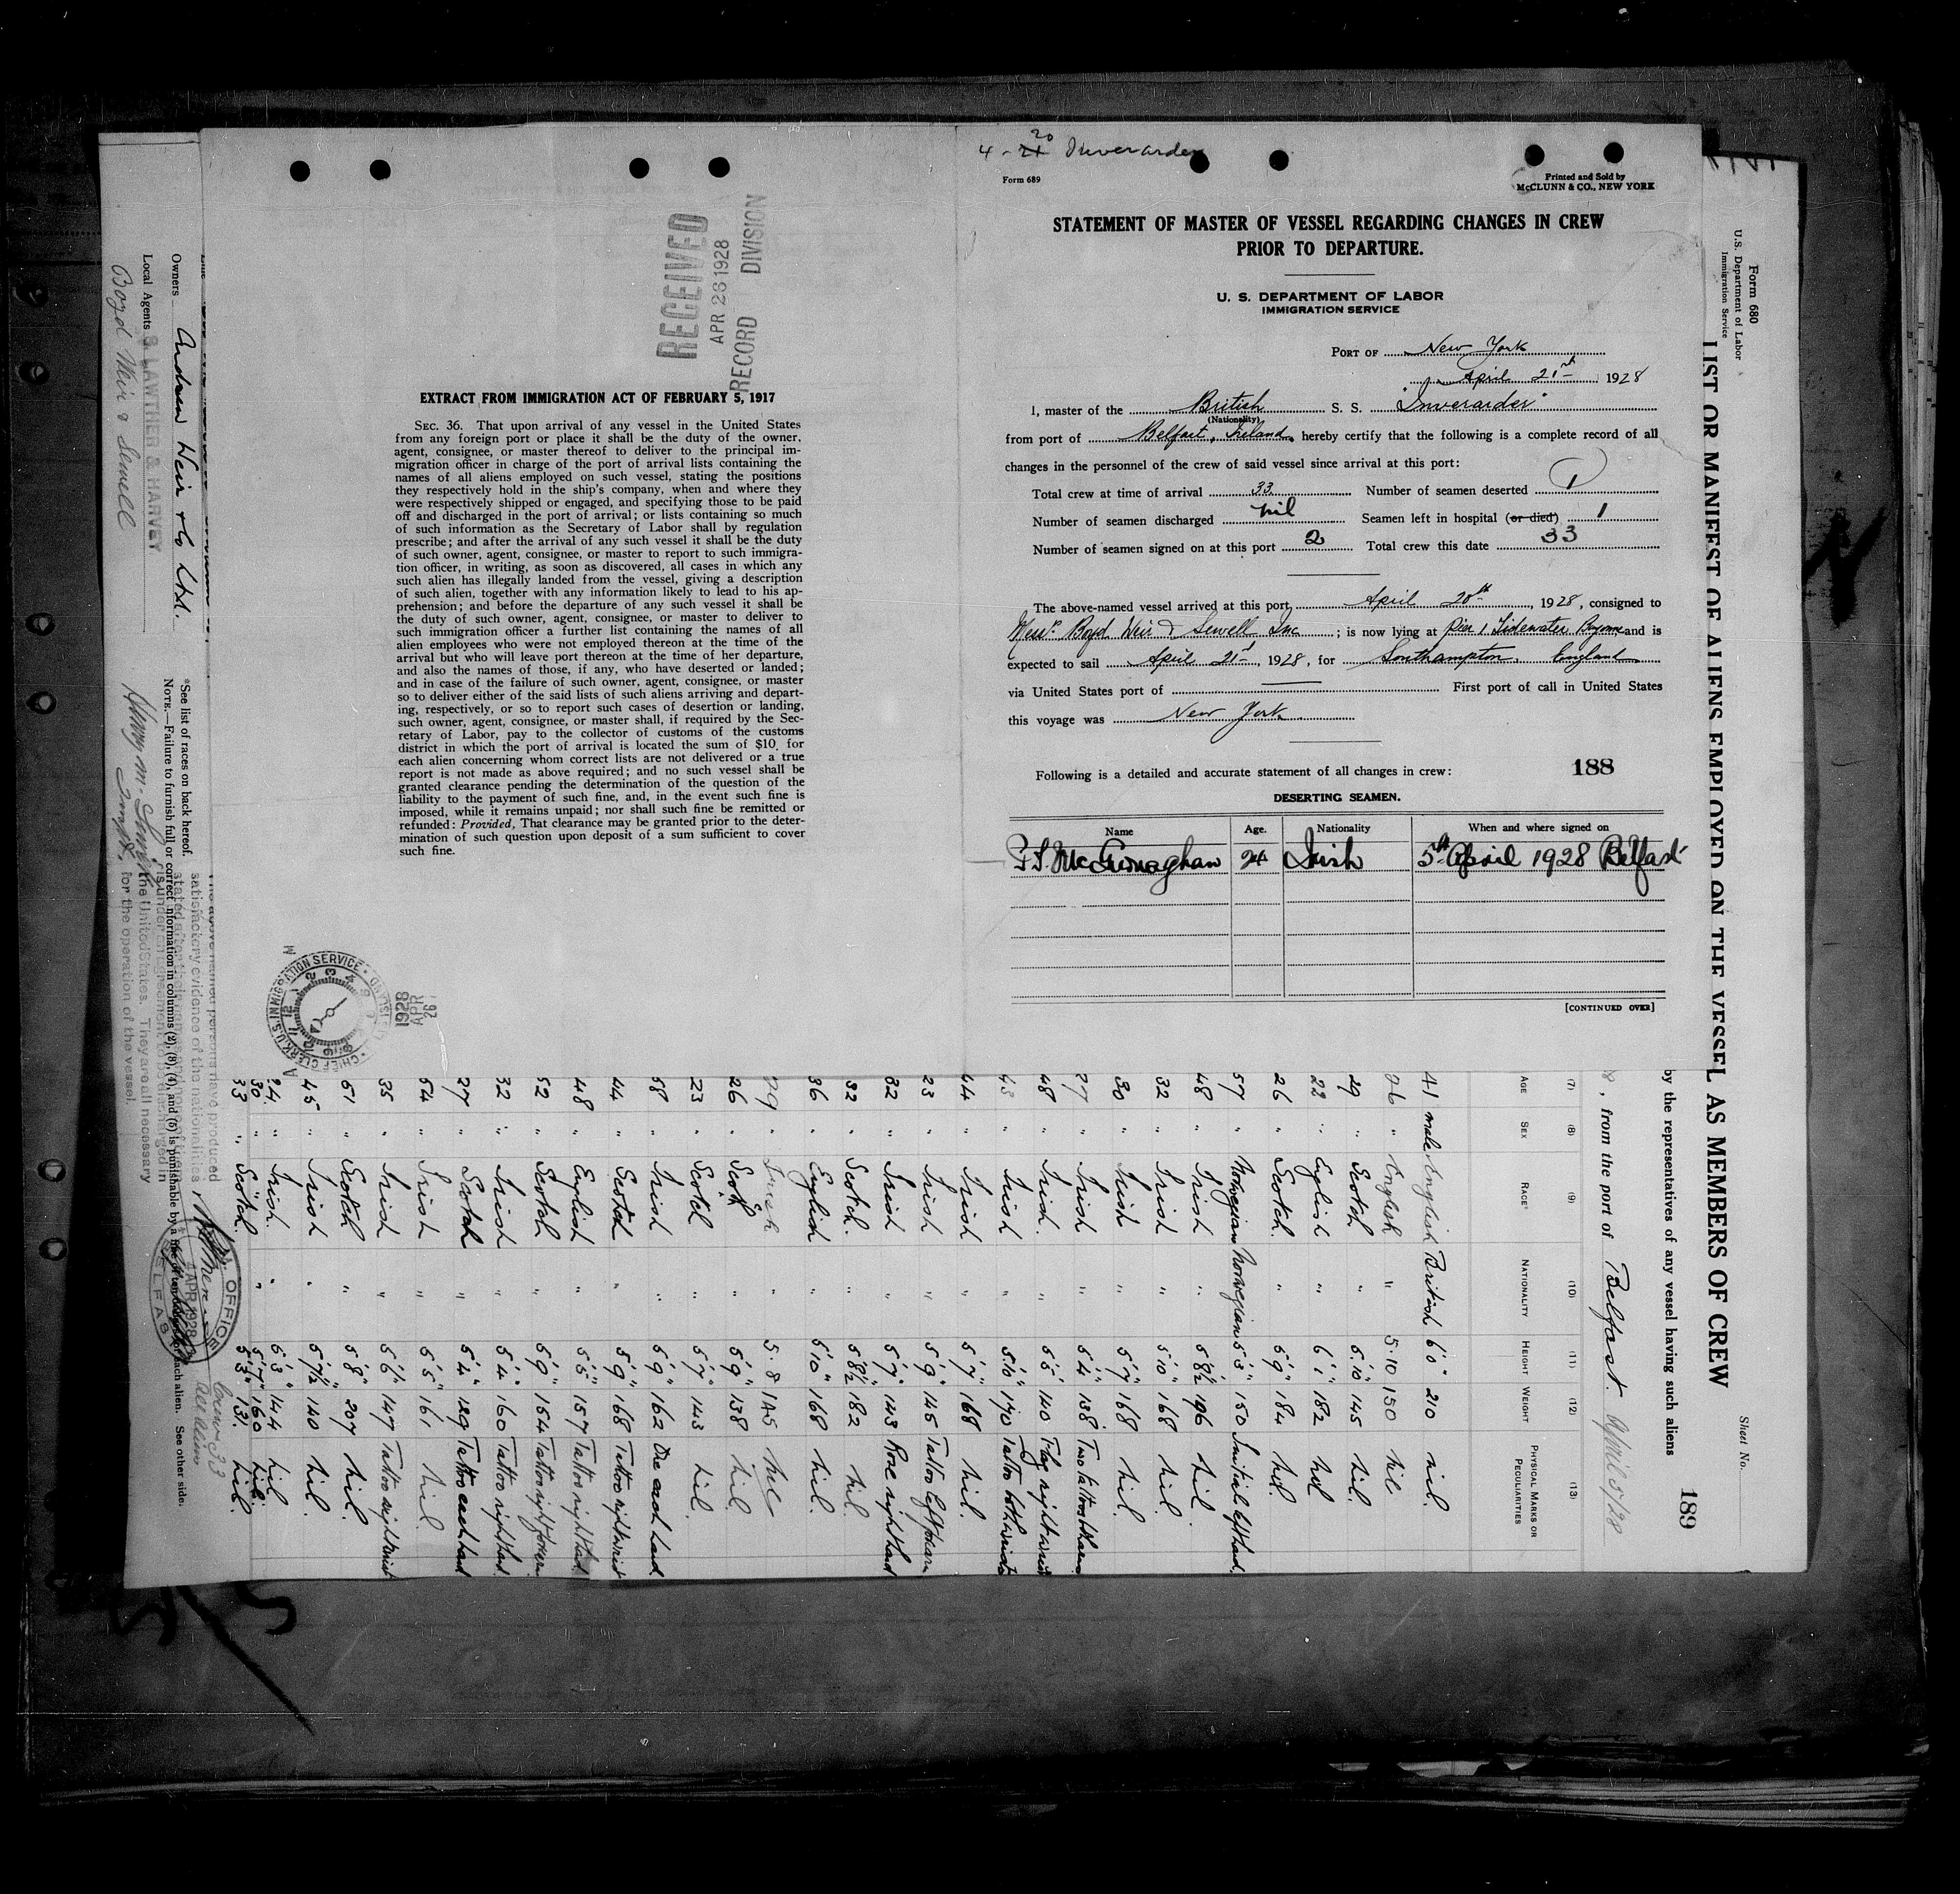 4 - 20 Inverarder
Form 689
Printed and Sold by
McCLUNN & CO., NEW YORK
STATEMENT OF MASTER OF VESSEL REGARDING CHANGES IN CREW
PRIOR TO DEPARTURE.
U. S. DEPARTMENT OF LABOR
IMMIGRATION SERVICE
PORT OF New York
April 21st 1928
I, master of the British S. S. "Inverarder"
(Nationality)
from port of Belfast, Ireland, hereby certify that the following is a complete record of all
changes in the personnel of the crew of said vessel since arrival at this port:
Total crew at time of arrival 33 Number of seamen deserted 1
Number of seamen discharged nil Seamen left in hospital (or died) 1
Number of seamen signed on at this port 2 Total crew this date 33
The above-named vessel arrived at this port April 20th, 1928, consigned to
Messrs Boyd Weir & Sewell Inc; is now lying at Pier 1 Tidewater Bayonne and is
expected to sail April 21st, 1928, for Southampton, England
via United States port of First port of call in United States
this voyage was New York
Following is a detailed and accurate statement of all changes in crew: 188
DESERTING SEAMEN.
Name Age. Nationality When and where signed on
24 Irish 5th April 1928 Belfast
[CONTINUED OVER]
RECEIVED
APR 26 1928
RECORD DIVISION
EXTRACT FROM IMMIGRATION ACT OF FEBRUARY 5, 1917
SEC. 36. That upon arrival of any vessel in the United States
from any foreign port or place it shall be the duty of the owner,
agent, consignee, or master thereof to deliver to the principal im-
migration officer in charge of the port of arrival lists containing the
names of all aliens employed on such vessel, stating the positions
they respectively hold in the ship's company, when and where they
were respectively shipped or engaged, and specifying those to be paid
off and discharged in the port of arrival; or lists containing so much
of such information as the Secretary of Labor shall by regulation
prescribe; and after the arrival of any such vessel it shall be the duty
of such owner, agent, consignee, or master to report to such immigra-
tion officer, in writing, as soon as discovered, all cases in which any
such alien has illegally landed from the vessel, giving a description
of such alien, together with any information likely to lead to his ap-
prehension; and before the departure of any such vessel it shall be
the duty of such owner, agent, consignee, or master to deliver to
such immigration officer a further list containing the names of all
alien employees who were not employed thereon at the time of the
arrival but who will leave port thereon at the time of her departure,
and also the names of those, if any, who have deserted or landed;
and in case of the failure of such owner, agent, consignee, or master
so to deliver either of the said lists of such aliens arriving and depart-
ing, respectively, or so to report such cases of desertion or landing,
such owner, agent, consignee, or master shall, if required by the Sec-
retary of Labor, pay to the collector of customs of the customs
district in which the port of arrival is located the sum of $10 for
each alien concerning whom correct lists are not delivered or a true
report is not made as above required; and no such vessel shall be
granted clearance pending the determination of the question of the
liability to the payment of such fine, and, in the event such fine is
imposed, while it remains unpaid; nor shall such fine be remitted or
refunded: Provided, That clearance may be granted prior to the deter-
mination of such question upon deposit of a sum sufficient to cover
such fine.
Form 680
U. S. Department of Labor
Immigration Service
Sheet No.
LIST OR MANIFEST OF ALIENS EMPLOYED ON THE VESSEL AS MEMBERS OF CREW
189
by the representatives of any vessel having such aliens
8, from the port of Belfast. April 5/28
(7) (8) (9) (10) (11) (12) (13)
AGE SEX RACE* NATIONALITY HEIGHT WEIGHT PHYSICAL MARKS OR PECULIARITIES
41 male English British 6'0" 210 nil.
26 " English " 5.10 150 nil
29 " Scotch " 5.10 145 nil.
22 " English " 6'1" 182 nil
26 " Scotch. " 5'9" 184 nil
57 Norwegian Norwegian 5'5" 150 Initial left hand,
48 " Irish " 5'8½ 196 nil
32 " Irish " 5'10" 168 nil.
30 " Irish " 5'7" 168 nil.
27 " Irish " 5'4" 138. Two tattoos
48 " Irish. " 5'5" 140 Flag right wrist
43 " Irish " 5.6" 170 Tattoo both wrists
44 " Irish " 5'7" 168 nil.
23 " Irish " 5'9" 145 Tattoo left forearm
32 " Irish " 5'7" 143 Rose right hand
32 " Scotch. " 5'8½ 182 nil.
36 " English " 5'10" 168 nil.
29 " Irish " 5.8 145 nil
26 " Scotch " 5'9" 138 nil.
23 " Scotch " 5'7" 143 nil.
58 " Irish " 5'9" 162 Dot each hand
44 " Scotch " 5'9" 168 Tattoo right wrist
48 " English " 5'5" 157 Tattoo right hand
52 " Scotch " 5'9" 154 Tattoo right forearm
32 " Irish " 5'4" 160 Tattoo right hand
27 " Scotch " 5'4" 129 Tattoo each hand
54 " Irish " 5'5" 161 nil
35 " Irish " 5'6" 147 Tattoo right wrist
51 " Scotch " 5'8" 207 nil.
45 " Irish " 5'7½ 140 nil.
24. " Irish. " 144 nil
30 " " 5'7" 160 nil
33 " Scotch. 5'5" 131. nil.
Owners Andrew Weir & Co Ltd.
Local Agents S. LAWTHER & HARVEY
Boyd Weir & Sewell
*See list of races on back hereof.
NOTE.—Failure to furnish full or correct information in columns (2), (3), (4), and (5) is punishable by a fine for each alien. See other side.
The above named persons have produced
satisfactory evidence of the nationalities
the United States. They are all necessary
for the operation of the vessel.
Crew 33
BELFAST
APR 1928
CHIEF CLERK U.S. IMMIGRATION SERVICE
1928
APR
26